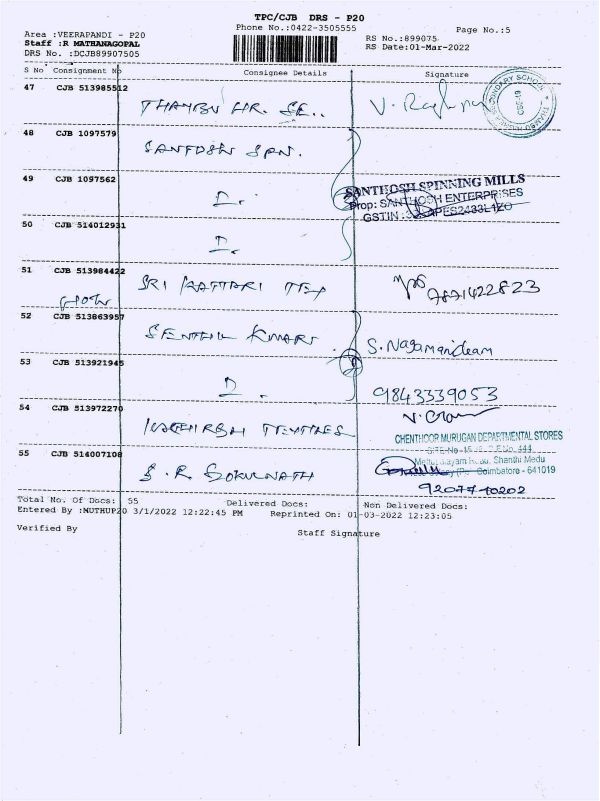 TPC/CJB DRS - P20
Phone No.:0422-3505555
Page No.:5
Area :VEERAPANDI - P20
Staff :R MATHANAGOPAL
DRS No. :DCJB89907505
RS No.:899075
RS Date:01-Mar-2022
S No Consignment No Consignee Details Signature
47 CJB 513985512
THAMBU HR. SE..
V. Raghu
48 CJB 1097579
SANTOSH SPN.
49 CJB 1097562
D.
SANTHOSH SPINNING MILLS
Prop: SANTHOSH ENTERPRISES
GSTIN :
50 CJB 514012931
D.
51 CJB 513984422
SRI TEX
7871422823
52 CJB 513863957
SENTHIL KUMAR
S. Nagamanideam
53 CJB 513921945
D.
9843339053
54 CJB 513972270
TEXTILES
CHENTHOOR MURUGAN DEPARTMENTAL STORES
55 CJB 514007108
S. R. GOKULNATH
Shanthi Medu
Coimbatore - 641019
92077-10202
Total No. Of Docs: 55 Delivered Docs: Non Delivered Docs:
Entered By :MUTHUP20 3/1/2022 12:22:45 PM Reprinted On: 01-03-2022 12:23:05
Verified By Staff Signature